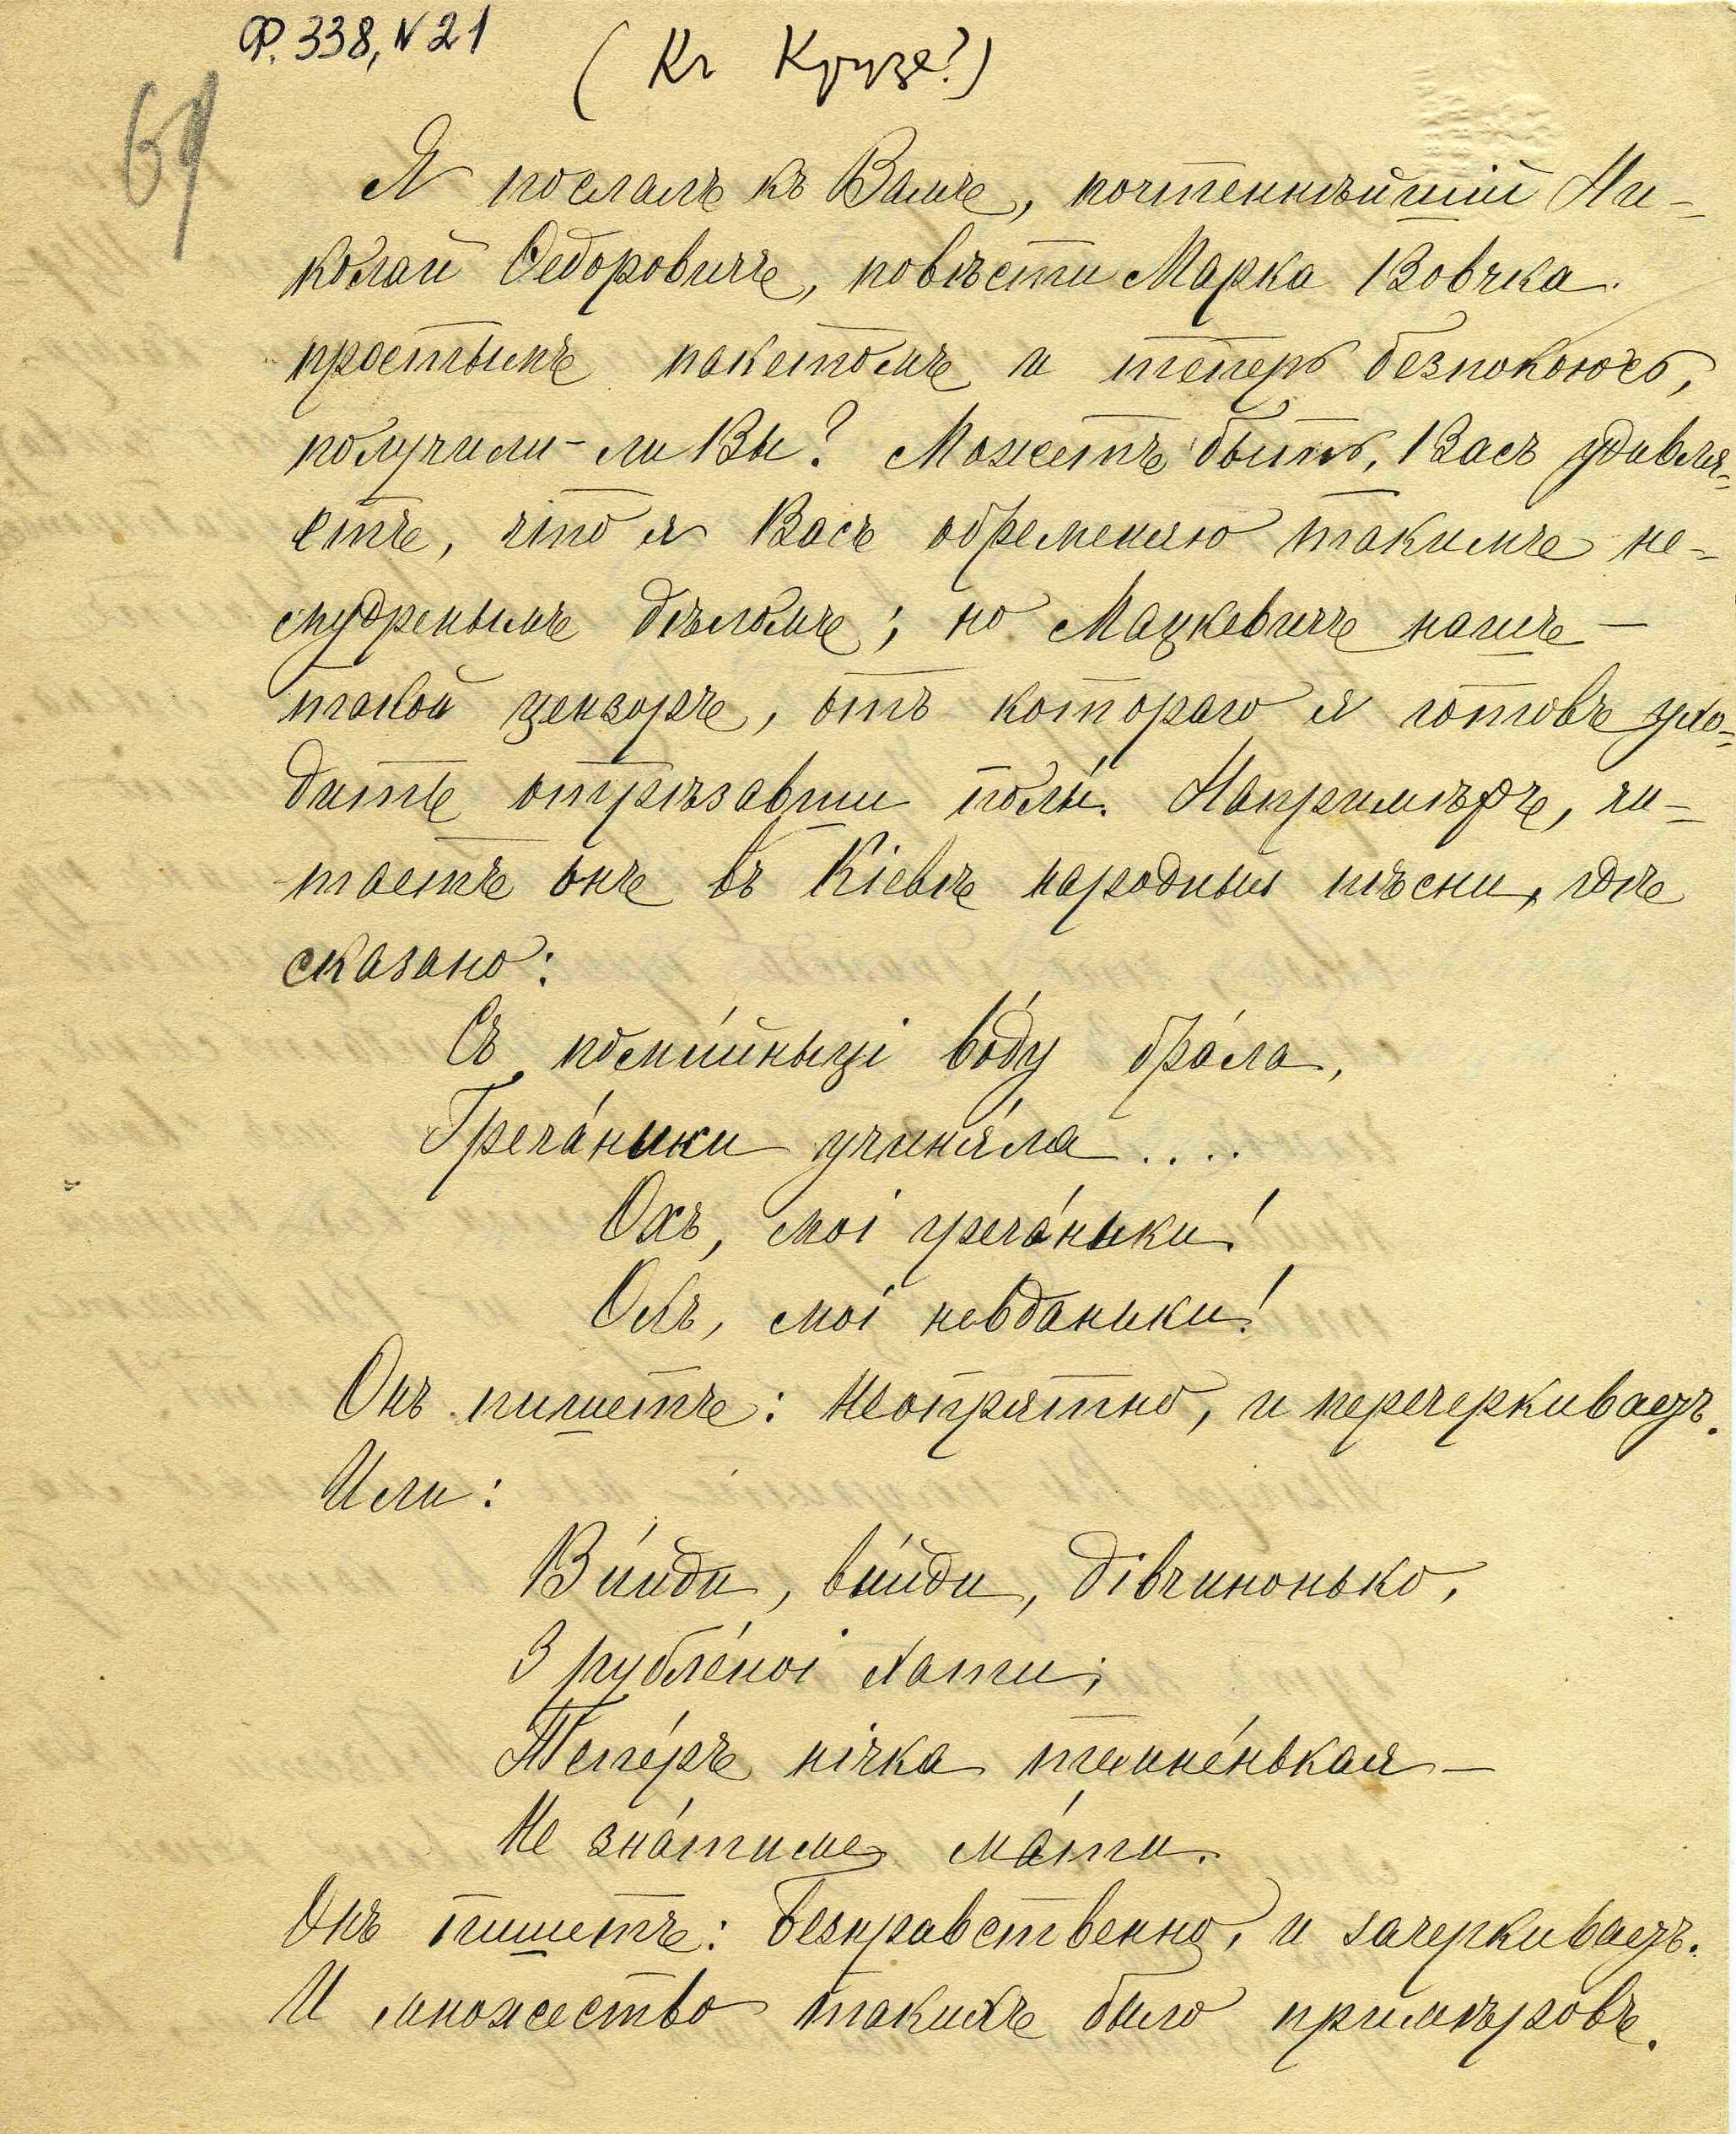 Ф. 338, N 21
(Къ Крузе?)
69
Я послалъ къ Вамъ, почтеннѣйшій Ни-
колай Ѳедоровичъ, повѣсти Марка Вовчка
простымъ пакетомъ и теперь безпокоюсь,
получили-ли Вы? Можетъ быть, Васъ удивля-
етъ, что я Васъ обременяю такимъ не-
мудренымъ дѣломъ; но Мацкевичъ нашъ —
такой цензоръ, отъ котораго я готовъ ухо-
дить отрѣзавши полы. Напримѣръ, чи-
таетъ онъ въ Кіевѣ народныя пѣсни, гдѣ
сказано:
Съ поми́йныці во́ду бра́ла,
Греча́ныки учиня́ла....
Охъ, мої греча́ныки!
Охъ, мої невда́ныки!
Онъ пишетъ: Неопрятно, и перечеркиваетъ.
Или:
Ви́йди, ви́йди, дівчинонько,
З рубле́ної хати;
Тепе́ръ нічка темне́нькая —
Не зна́тиме ма́ти.
Онъ пишетъ: Безнравственно, и зачеркиваетъ.
И множество такихъ было примѣровъ.